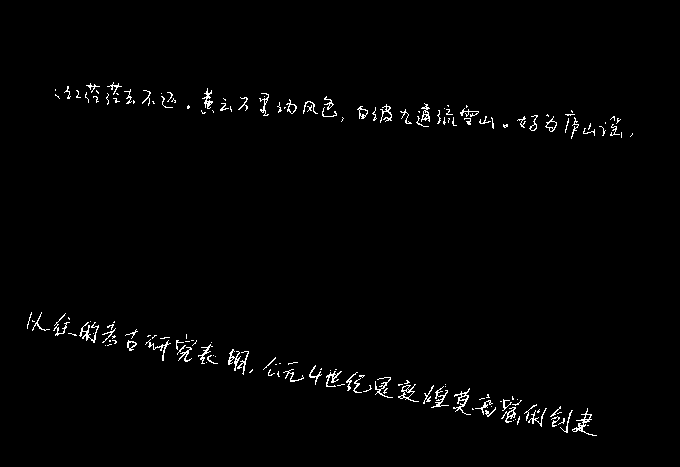 江茫茫去不还。黄云万里动风色,白波九道流雪山。好为庐山谣,
以往的考古研究表明,公元4世纪是敦煌莫高窟的创建